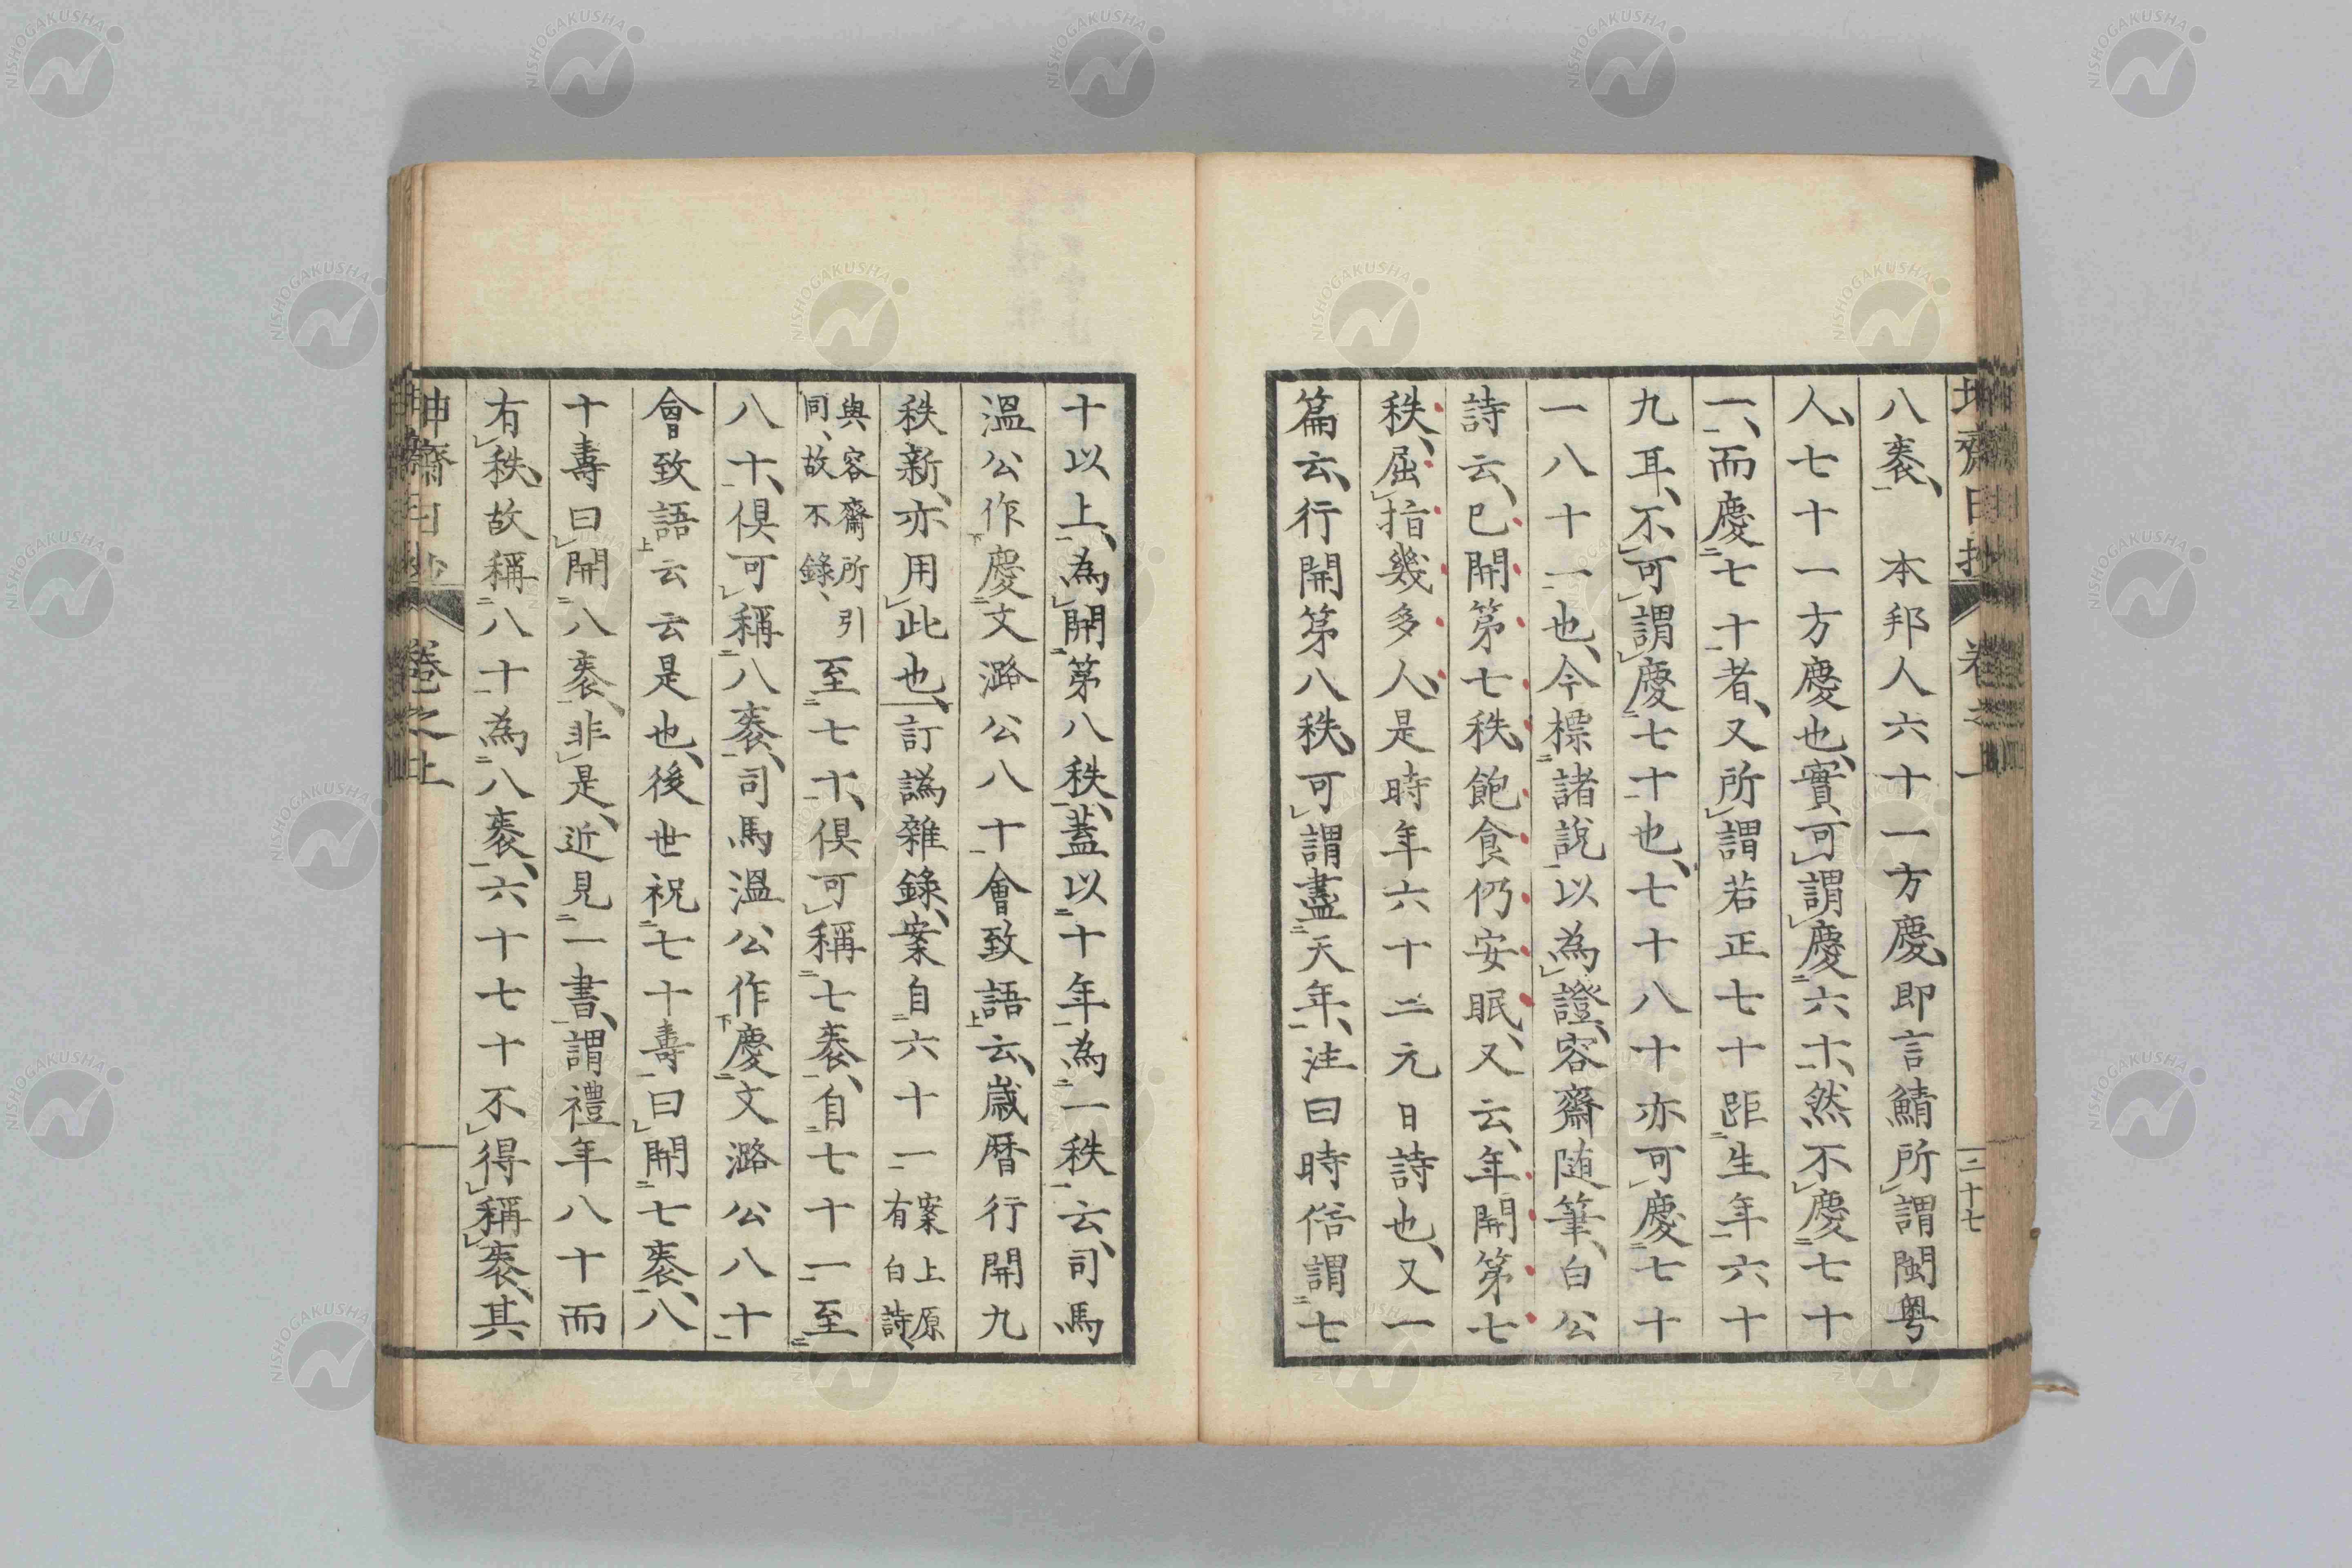 八袠、　本邦人六十一方慶、即言鯖所謂閩粤
人、七十一方慶也、實可謂慶六十、然不慶七十
一、而慶七十者、又所謂若正七十距生年六十
九耳、不可謂慶七十也、七十八十亦可慶七十
一八十一也、今標諸說以為證、容齋随筆、白公
詩云、已開第七秩、飽食仍安眠、又云、年開第七
秩、屈指幾多人、是時年六十二元日詩也、又一
篇云、行開第八秩、可謂盡天年、注曰時俗謂七
十以上、為開第八秩、蓋以十年為一秩云、司馬
溫公作慶文潞公八十會致語云、歲曆行開九
秩新、亦用此也、訂譌雜錄、案自六十一案上原有白詩、
與容齋所引同、故不錄、至七十、俱可稱七袠、自七十一至
八十、俱可稱八袠、司馬溫公作慶文潞公八十
會致語云云是也、後世祝七十壽曰開七袠、八
十壽曰開八袠、非是、近見一書、謂禮年八十而
有秩、故稱八十為八袠、六十七十不得稱袠、其
卷之上
三十七
NISHOGAKUSHA